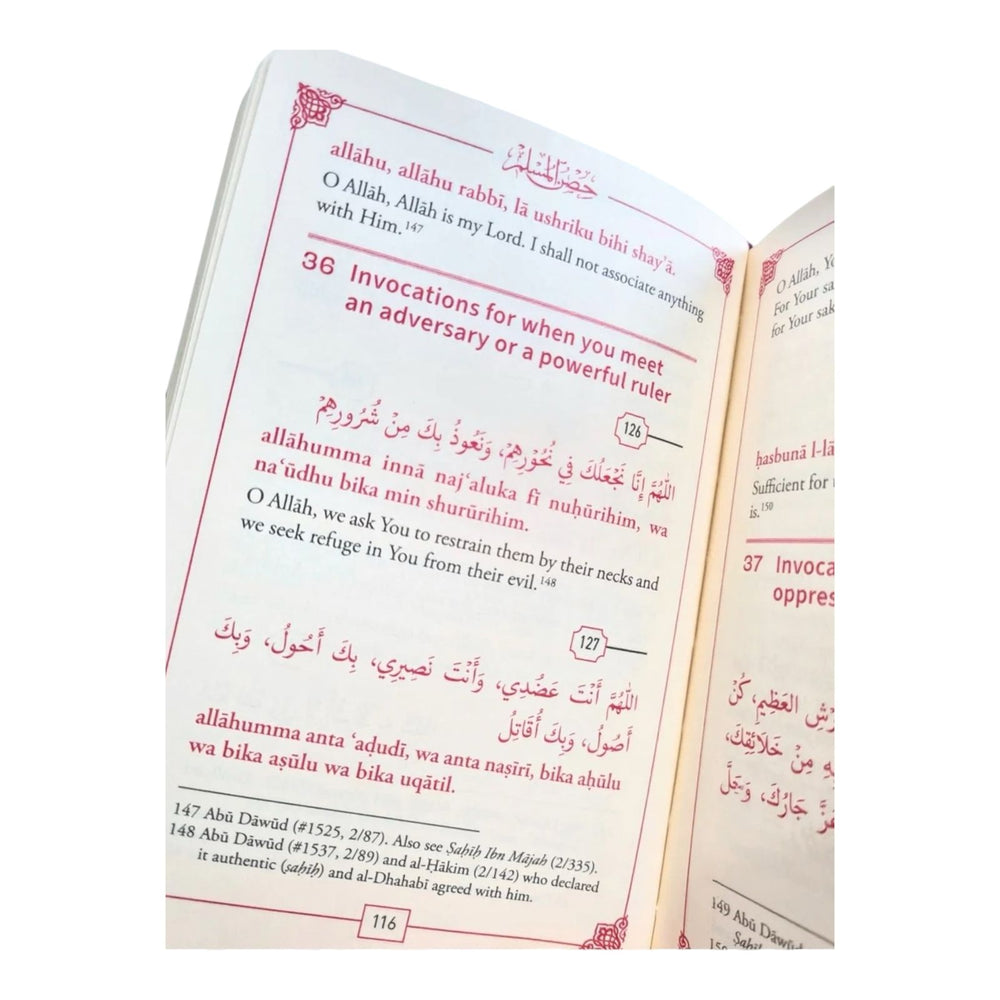 حصن المسلم
allāhu, allāhu rabbī, lā ushriku bihi shay’ā.
O Allāh, Allāh is my Lord. I shall not associate anything
with Him.147
36 Invocations for when you meet
an adversary or a powerful ruler
126
اللّٰهُمَّ إِنَّا نَجْعَلُكَ فِي نُحُوْرِهِمْ، وَنَعُوذُ بِكَ مِنْ شُرُورِهِمْ
allāhumma innā naj‘aluka fī nuḥūrihim, wa
na‘ūdhu bika min shurūrihim.
O Allāh, we ask You to restrain them by their necks and
we seek refuge in You from their evil.148
127
اللّٰهُمَّ أَنْتَ عَضُدِي، وَأَنْتَ نَصِيرِي، بِكَ أَحُولُ، وَبِكَ
أَصُولُ، وَبِكَ أُقَاتِلُ
allāhumma anta ‘aḍudī, wa anta naṣīrī, bika aḥūlu
wa bika aṣūlu wa bika uqātil.
147 Abū Dāwūd (#1525, 2/87). Also see Ṣaḥīḥ Ibn Mājah (2/335).
148 Abū Dāwūd (#1537, 2/89) and al-Ḥākim (2/142) who declared
it authentic (ṣaḥīḥ) and al-Dhahabī agreed with him.
116
O Allāh,
For Your
for Your
ḥasbunā
Sufficient for
is.150
37
العَظِيمِ، كُنْ
مِنْ خَلَائِقِكَ،
عَزَّ جَارُكَ، وَجَلَّ
149 Abū Dāwūd
Ṣaḥīḥ
150